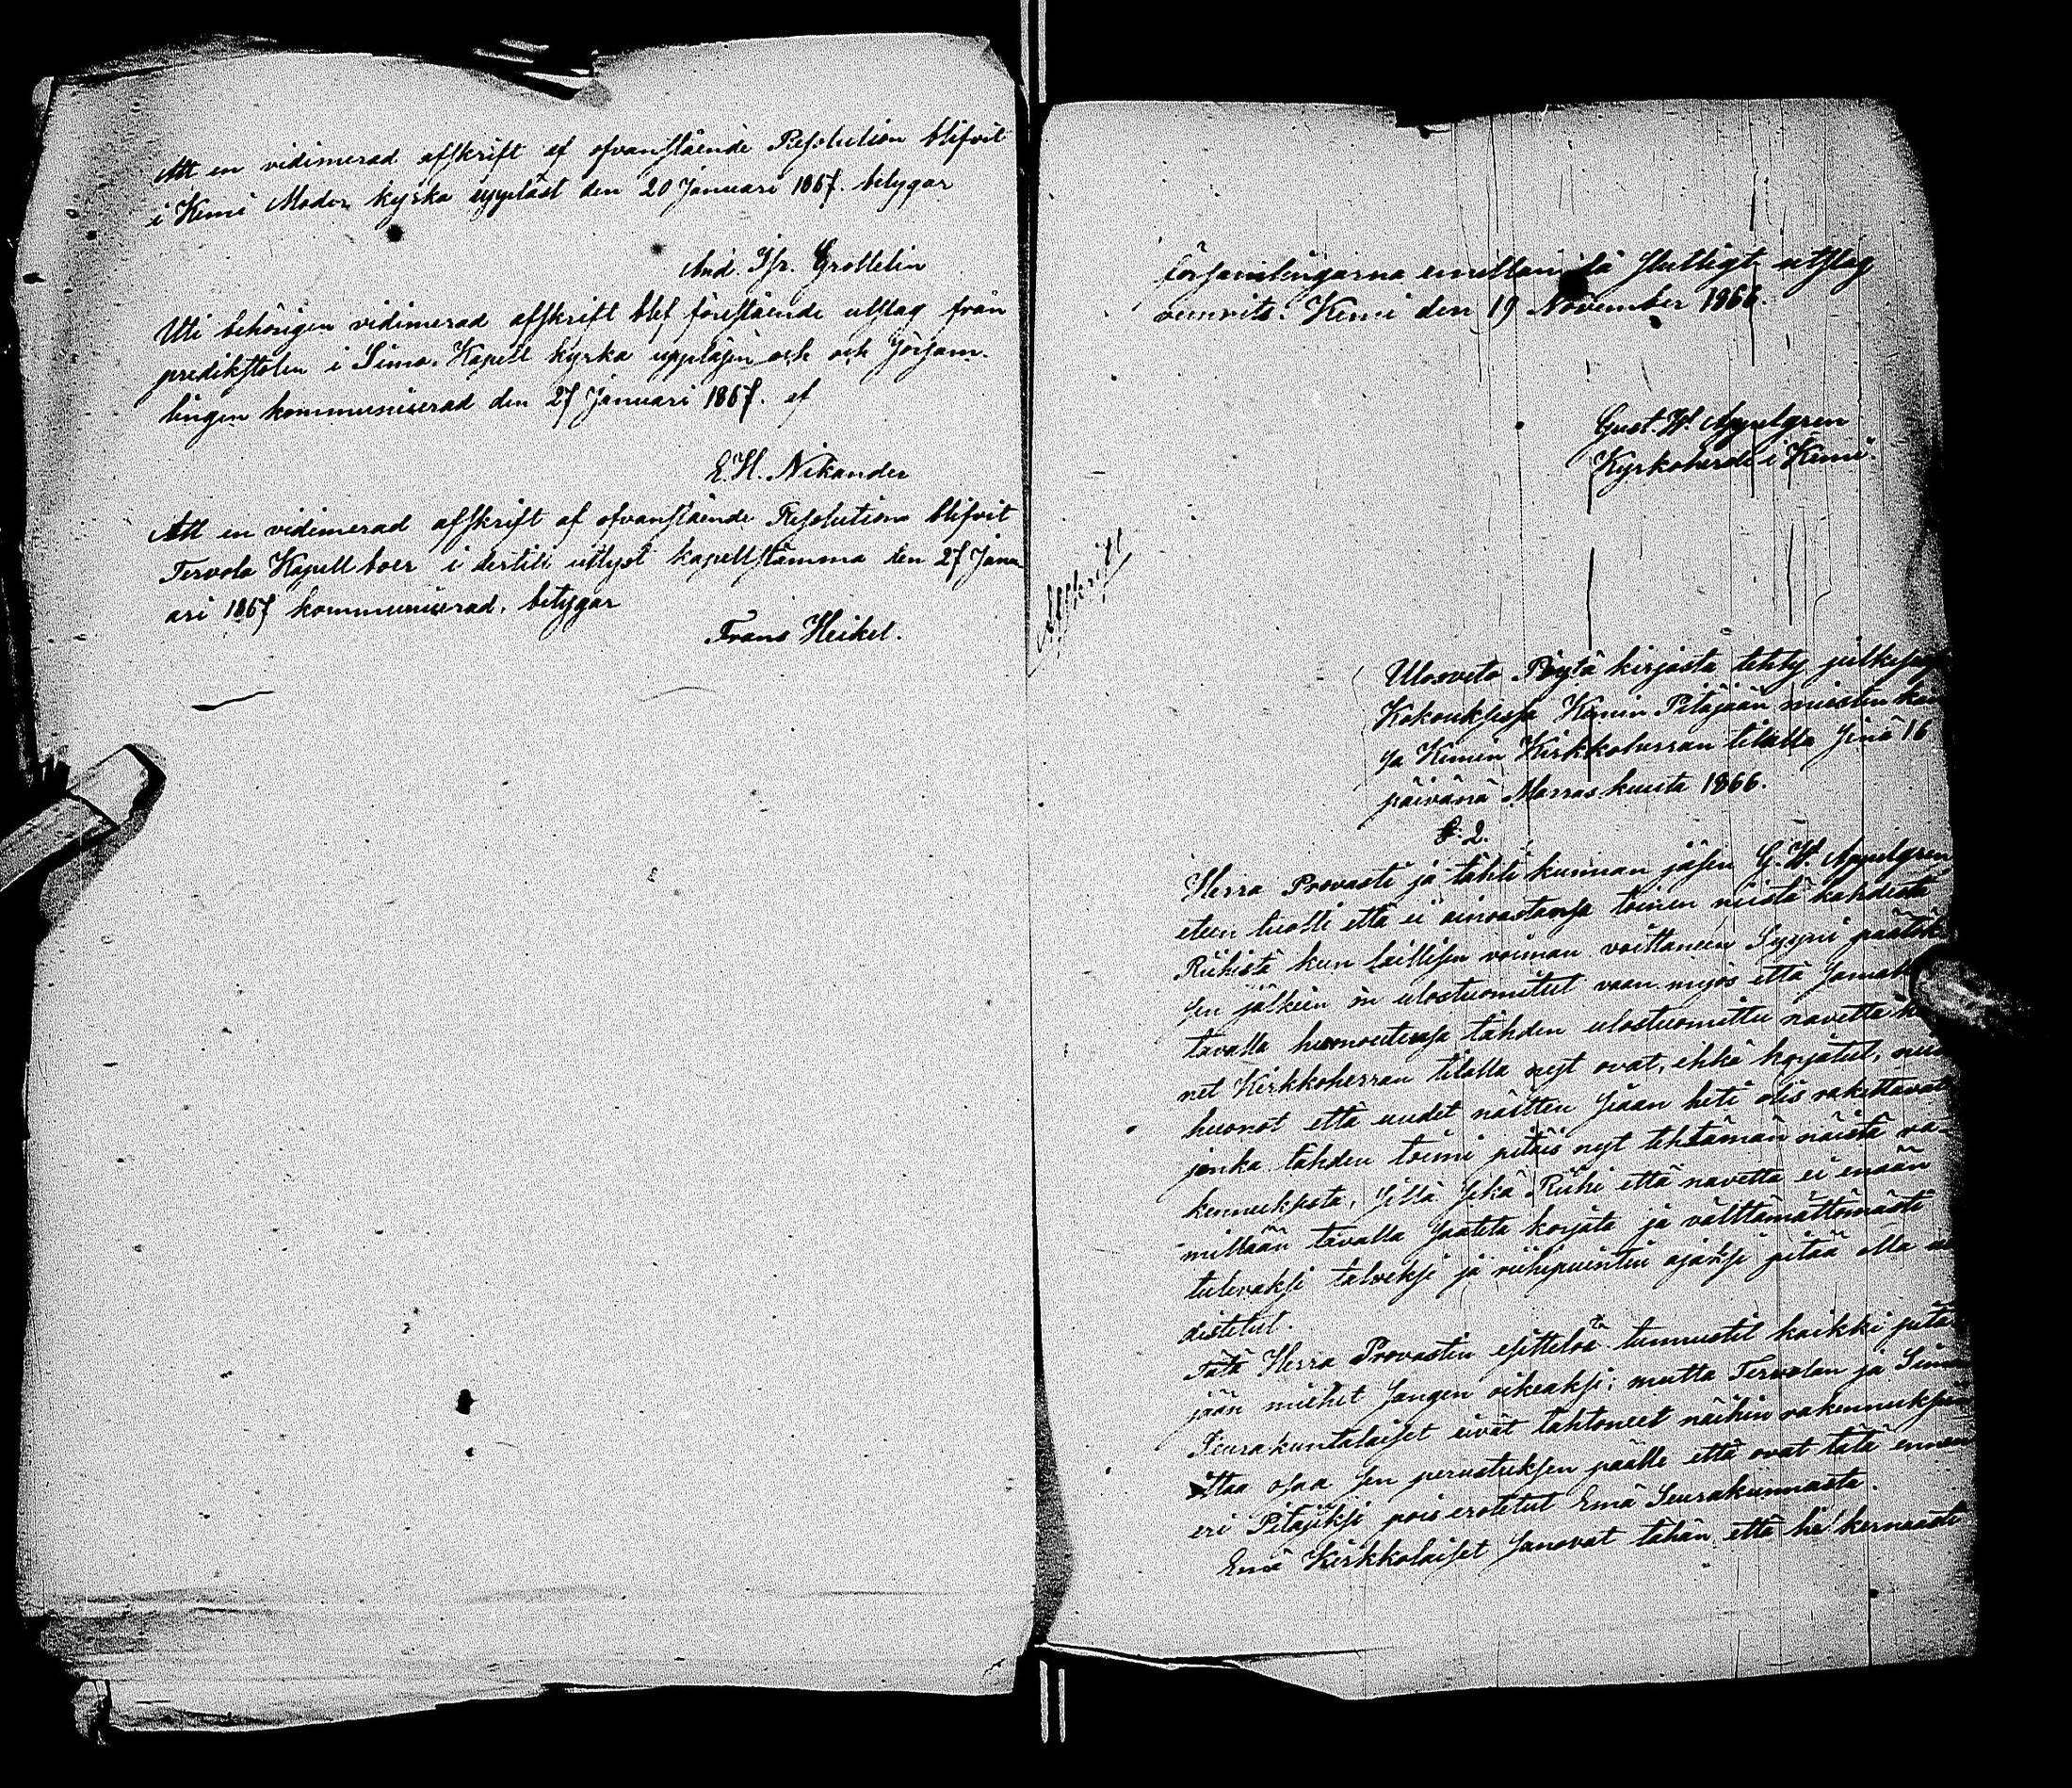 Att en vidimerad afskrift af ofvanstående Resolution blifvit
i Kemi Moder kyrka uppläst den 20 Januari 1867. betygar
And. Isr. Grottelin
Uti behörigen vidimerad afskrift blef förestående utslag från
predikstolen i Simo Kapell kyrka uppläsen och och Församlingen
lingen kommunicerad den 27 Januari 1867. af
E. H. Nikander
Att en vidimerad afskrift af ofvanstående Resolution blifvit
Tervola Kapell boer i dertill utlyst kapellstämma den 27 Janu
ari 1867 kommunicerad, betygar
Frans Heikel.
församlingarna emellan få slutligt utslag
Kemi den 19 November 1866.
Gust. W. Appelgren
Kyrkoherde i Kemi.
Afskrift
Ulosveto Pöytä kirjasta tehty julkisessa
Kokouksessa Kemin Pitäjään miesten
sa Kemin Kirkkoherran tilalla sinä 16
päivänä Marraskuuta 1866.
§. 2.
Herra Provasti ja tähti kunnan jäsen G. W. Appelgren
eteen tuotti että ei ainoastansa toinen niistä kahdesta
Riihistä kun laillisen voiman voittaneen Syyni päätök
sen jälkeen on ulostuomitut vaan myös että samalla
tavalla huonoutensa tähden ulostuomittu navetta
net Kirkkoherran tilalla nyt ovat, ehkä korjatut, niin
huonot että uudet näitten siaan heti olis rakettavat
jonka tähden toimi pitäis nyt tehtämän näistä ra-
kennuksista, sillä sekä Riihi että navetta ei enään
millään tavalla saateta korjata ja välttämättömästi
tulevaksi talveksi ja riihipuintin ajaksi pitää olla
distetut.
Tätä Herra Provastin esitteloä tunnustit kaikki pitä
jään miehet sangen oikeaksi; mutta Tervolan ja Simon
Seurakuntalaiset eivät tahtoneet näihin rakennuksiin
ottaa osaa sen perustuksen päälle että ovat tätä ennen
eri Pitäjiksi pois erotetut Emä Seurakunnasta.
Emä Kirkkolaiset sanovat tähän, että he kernaasti